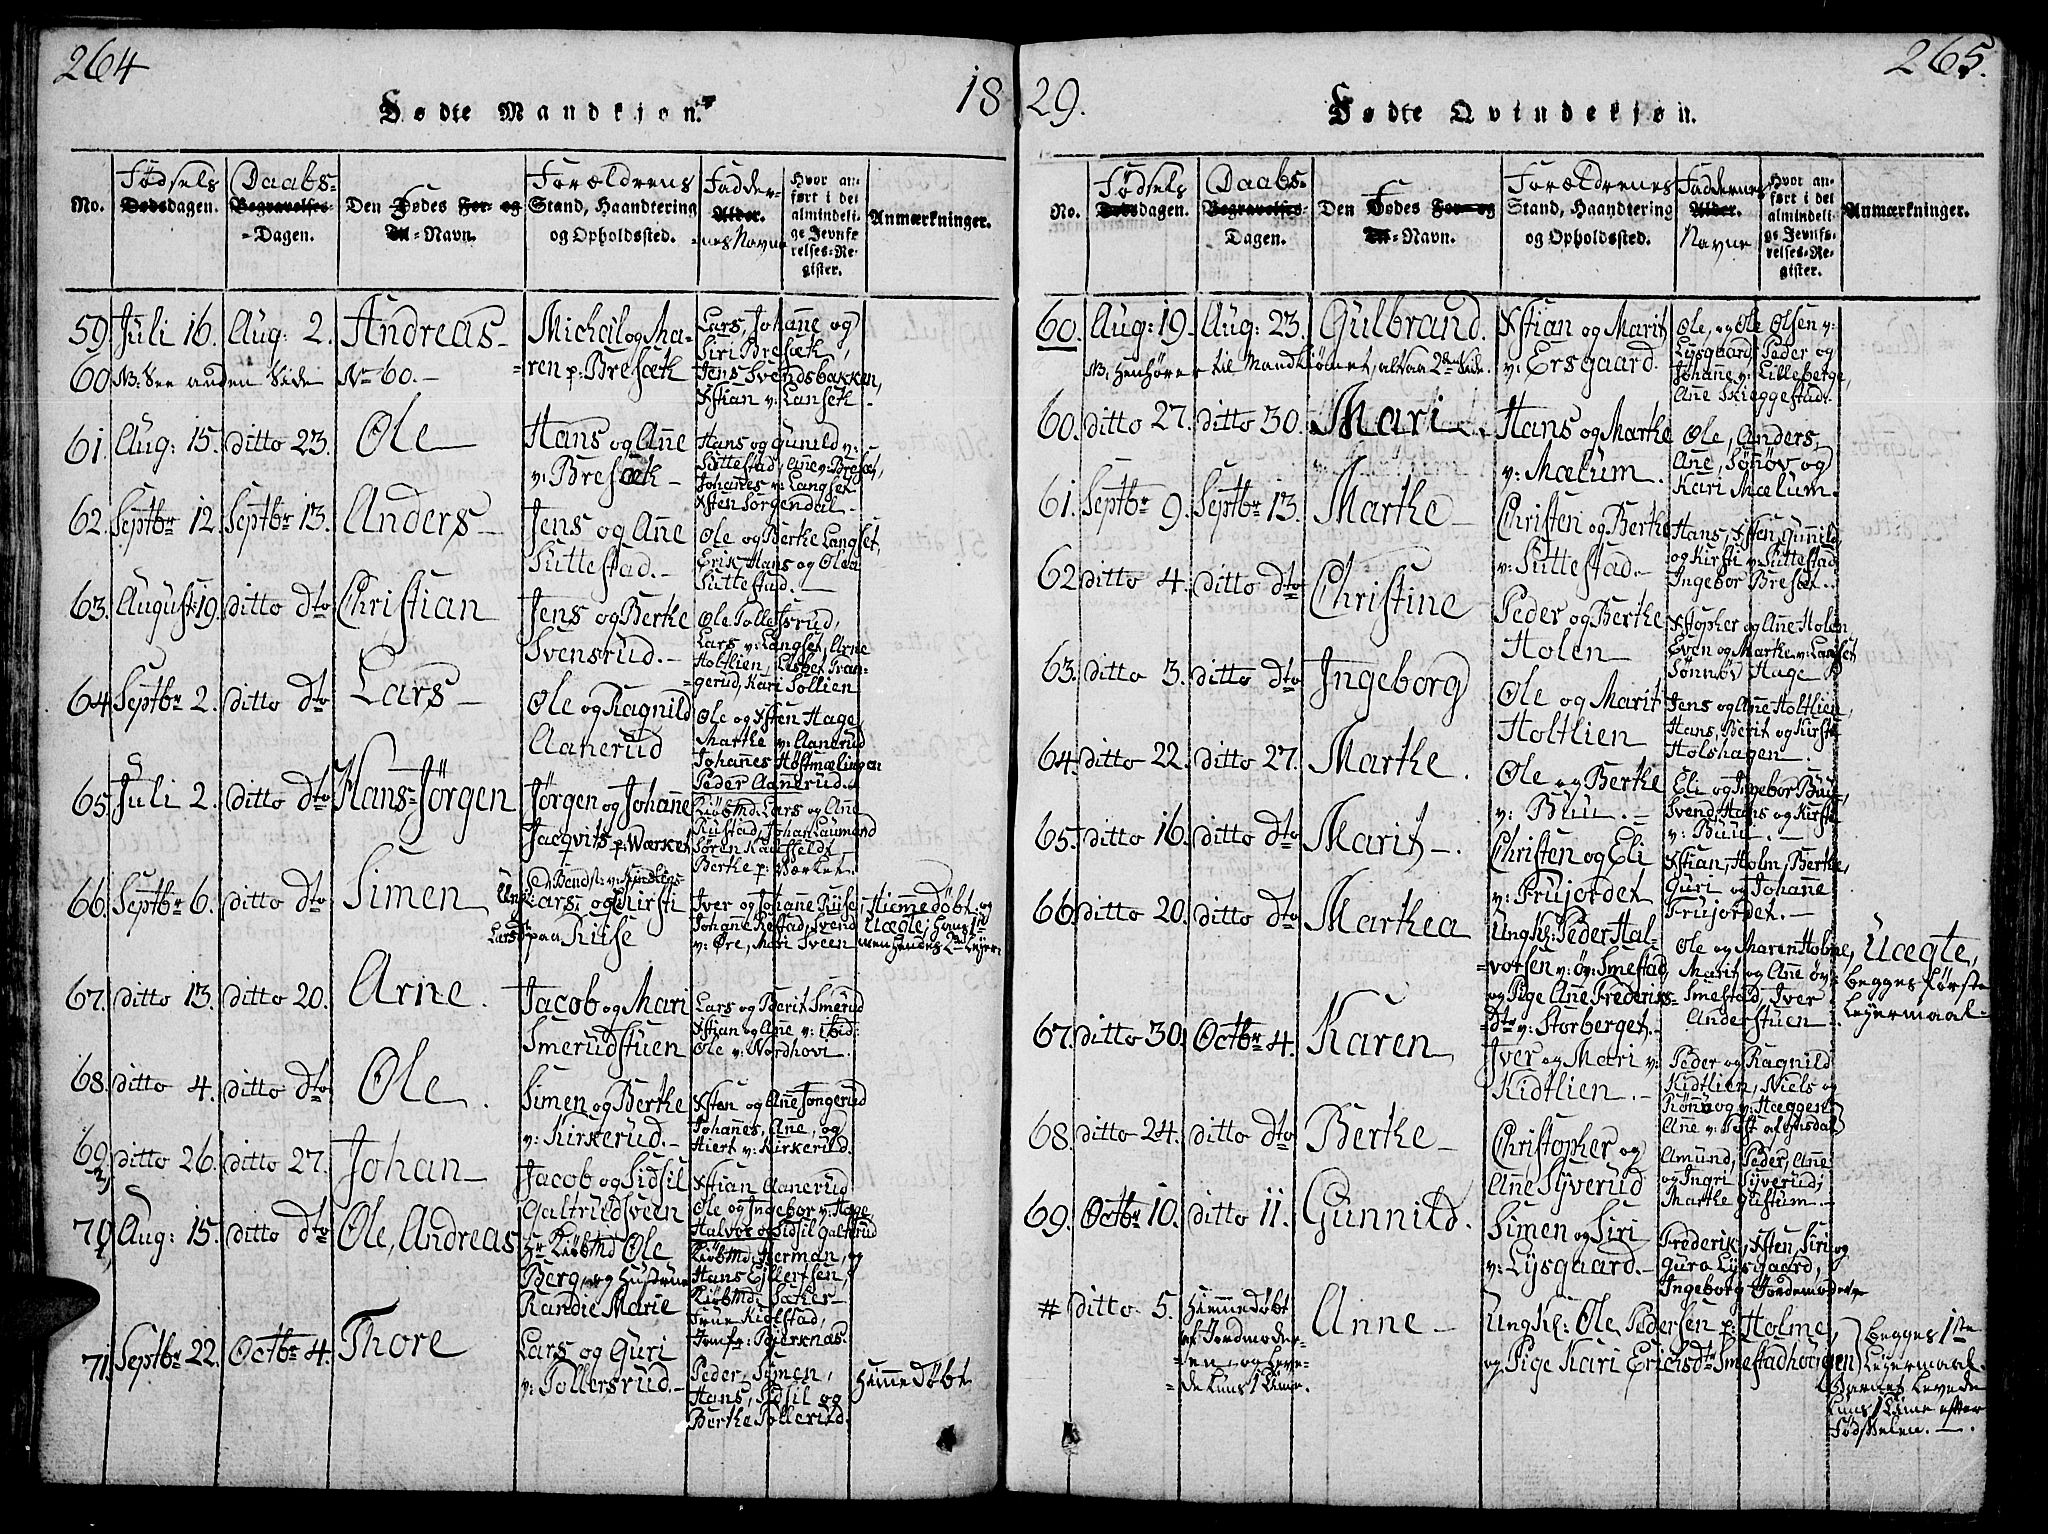 264
18
Fødte Mandkjøn.
No.
Fødsels
Dødsdagen.
Daabs-
Begravelses-
=Dagen.
Den Fødes For- og
Til-Navn.
Forældrens
Stand, Haandtering
og Opholdssted.
Fadder-
Alder.
=nes Navne
Hvor an-
ført i det
almindeli-
ge Jevnfø-
relses-Re-
gister.
Anmærkninger.
59. Juli 16. Aug: 2. Andreas- Michail og Ma-
=ren p: Bresæk
Lars, Johanne og
Siri Bresæk,
Jens Svendsbakken,
Xstian v: Lansek-
60 NB: See anden Side No 60.-
61. Aug: 15. ditto 23. Ole Hans og Ane
v: Bresæk-
Hans og Gunild v:
Suttestad, Ane v: Breset,
Johannes v: Langset
Xsten Sorgendal-
62. Septbr 12. Septbr 13. Anders- Jens og Ane
Suttestad.-
Ole og Berthe Langset,
Erik, Hans og Olea
Suttestad.-
63. August 19. ditto dto Christian Jens og Berthe
Svensrud.-
Ole Tollefsrud,
Lars v: Langset, Arne
Holtlien, Lisbet Tran-
=gerud, Kari Sollien
64 Septbr 2. ditto dto Lars- Ole og Ragnild
Aanerud
Ole og Xsten Hage,
Marthe v: Aanerud
Johanes Høstmælingen
Peder Aanerud.
65. Juli 2. ditto dto Hans-Jørgen Jørgen og Johanne
Jacqvits p: Wærket
Kiøbmd. Lars og Ane
Rustad, Johan Laumand
Søren Kaufeldt
Berthe p: Værket.
66. Septbr 6. ditto dto Simen
Ungk: Lars og Kirsti
Larsdt paa Riise
Iver og Johane Riise
Johanne Restad, Svend
v: Øre, Mari Sveen
Hiemedøbt og
Uægte, Hans 1st
men Hendes 2det Leyer:
67. ditto 13. ditto 20. Arne. Jacob og Mari
Smerudstuen
Lars og Berit Smerud
Xstian og Ane v: ibid:
Ole v: Nordhovi.
68. ditto 4. ditto dto Ole. Simen og Berthe
v: Kirkerud.-
Xsten og Ane Songerud
Johannes, Ane, og
Hiert v: Kirkerud.
69 ditto 26. ditto 27. Johan- Jacob og Sidsil
Galtrudsveen
Xstian Aanerud
Ole og Ingebor v: Hage,
Halvor og Sidsil Galterud
70 Aug: 15. ditto dto Ole, Andreas Hr Kiøbmd Ole
Berg, og Hustrue
Randie Marie
Kiøbmd: Herman, og
Hans Ejlertsen,
Kiøbmd: Saker
Frue Kildstad,
Jomfr: Bierknas
71. Septbr 22. Octbr 4. Thore Lars og Guri
v: Tollersrud.-
Peder, Symen,
Hans, Sidsil og
Berthe Tollerud.
Hiemmedøbt
265.
29.
Fødte Qvindekjøn.
No.
Fødsels
Dødsdagen.
Daabs-
Begravelses-
Dagen.
Den Fødes For- og
Til-Navn.
Forældrenes
Stand, Haandtering
og Opholdssted.
Faddernes
Alder.
Navne
Hvor an-
ført i det
almindeli-
ge Jevnfø-
relses-Re-
gister.
Anmærkninger.
60. Aug: 19. Aug: 23. Gulbrand. Xstian og Marit
v: Ersgaard.
NB: henhører til Mandkiønnet, altsaa 2den Side.
Ole, og Ole Olsen v:
Lysgaard Peder og
Johanne v: Lilleberge,
Ane Skieggestad.
60. ditto 27. ditto 30. Mari Hans og Marthe
v: Mælum.
Ole, Anders,
Ane, Sønøv og
Kari Mælum.
61. Septbr 9. Septbr 13. Marthe- Christen og Berthe
v: Suttestad.-
Hans, Xsten, Gunild
og Kirsti v: Suttestad
Ingebor Breset.
62 ditto 4. ditto dto Christine Peder og Berthe
Holen
Xstopher og Ane Holen
Even og Marthe v: Lanset
Sønnøv Hage
63. ditto 3. ditto dto Ingeborg Ole og Marit
Holtlien
Jens og Ane Holtlien,
Hans, Berit og Kirsti
Holshagen
64. ditto 22. ditto 27. Marthe. Ole og Berthe
v: Buu.-
Eli og Ingebor Buu,
Svend, Hans og Kirsti
v: Buu.-
65. ditto 16. ditto dto Marit-. Christen og Eli
v: Frujordet
Xstian, Holm, Berthe,
Guri og Johanne
Frujordet.-
66 ditto 20. ditto dto Marthea Ungk: Peder Hal-
=vorsen v: øv: Smestad,
og Pige Ane Frederiks-
=dto v: Storberget.-
Ole og Maren Holme,
Marit og Ane øv:
Smestad, Iver
Anderstuen
Uægte,
begges første
Leyermaal.
67. ditto 30. Octbr 4. Karen Iver og Mari v:
Kidtlien.-
Peder og Ragnild
Kidtlien, Niels og
Rønnog v: Hæggen
Ane v:
68. ditto 24. ditto dto Berthe- Christopher og
Ane Syverud
Amund, Peder, Ane
og Ingri Syverud;
Marthe Gustum-
69. Octbr 10. ditto 11. Gunnild. Simen og Siri
v: Lysgaard.-
Frederik, Xsten, Siri og
Gura Lysgaard,
Ingeborg Jordemoder
# ditto 5. Hiemmedøbt
af Jordmode-
=en, og leve-
=de kuns 1 Time.
Anne- Ungk: Ole Pedersen p: Holme,
og Pige Kari Erichsdtr Smestadhougen
begges 1ste
Leyermaal.
Barnet levede
kuns 1 Time efter
Fødselen.-